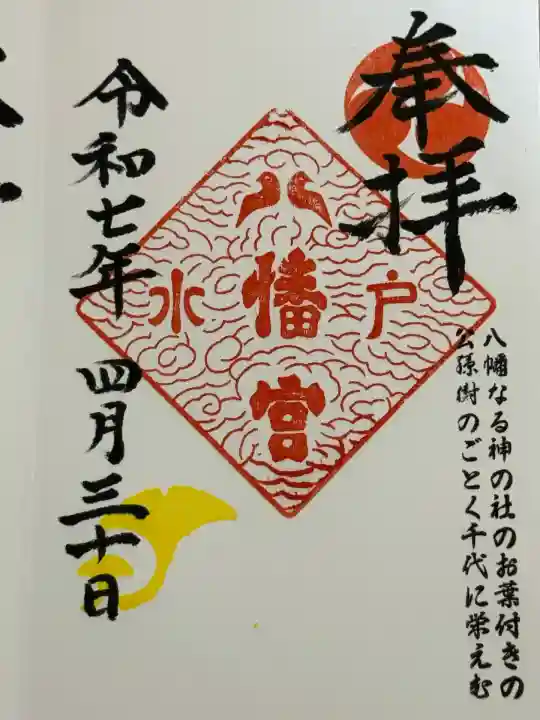 奉拝
八幡なる神の社のお葉付きの
公孫樹のごとく千代に栄えむ
水戸
八幡宮
令和七年 四月三十日